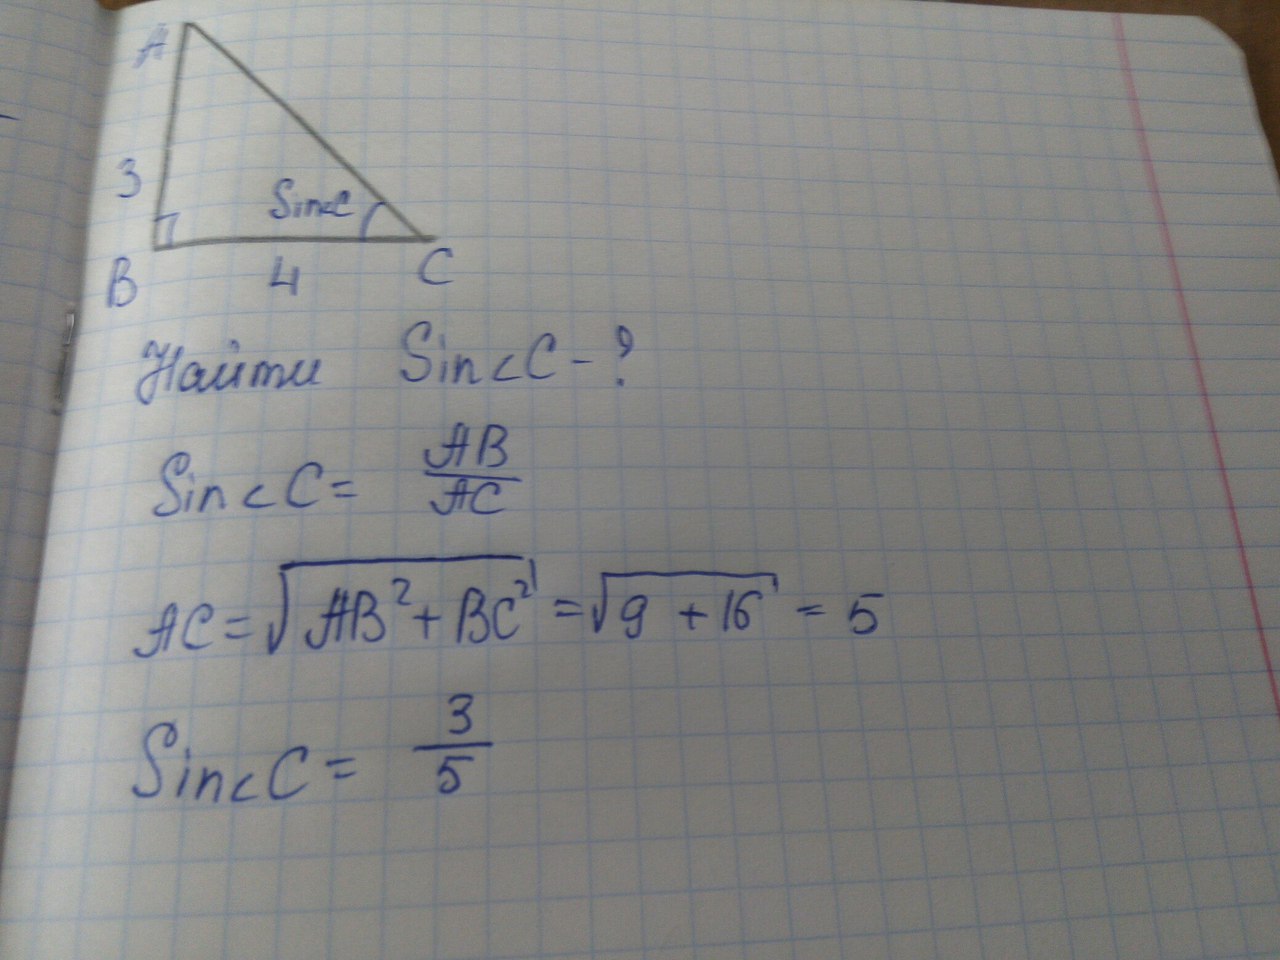 A
3
Sin<C
B
4
C
Найти Sin<C-?
Sin<C= AB/AC
AC=√AB²+BC² =√9+16 = 5
Sin<C= 3/5